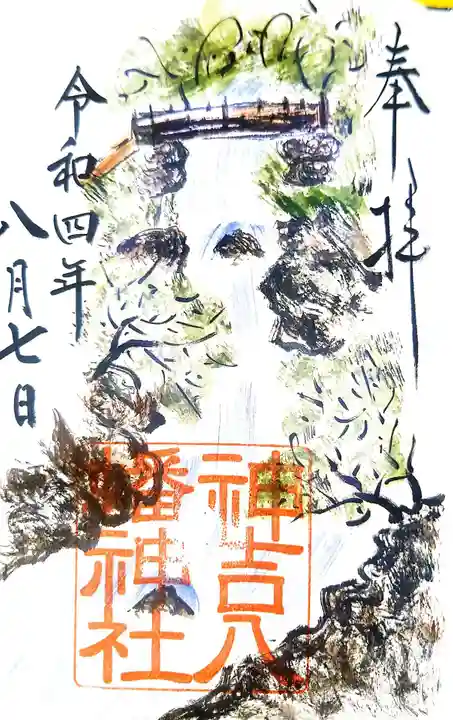 奉拝
神吉八
幡神社
令和四年
八月七日